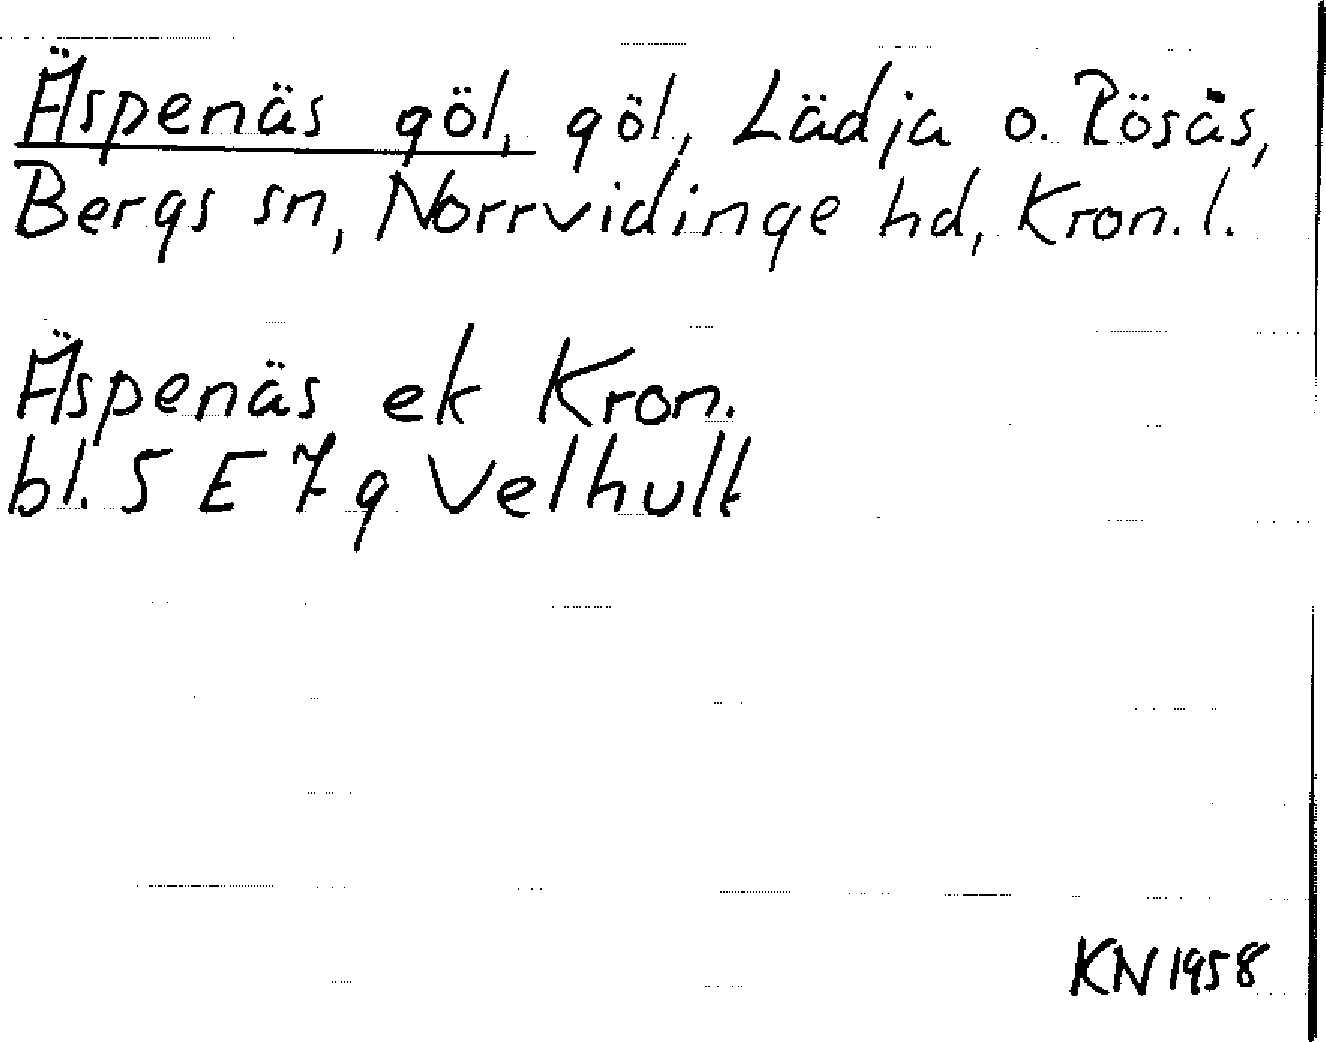 Äspenäs göl, göl, Lädja o. Rösås,
Bergs sn, Norrvidinge hd, Kron.l.
Äspenäs ek Kron.
bl. 5 E 7 g Velhult
KN 1958